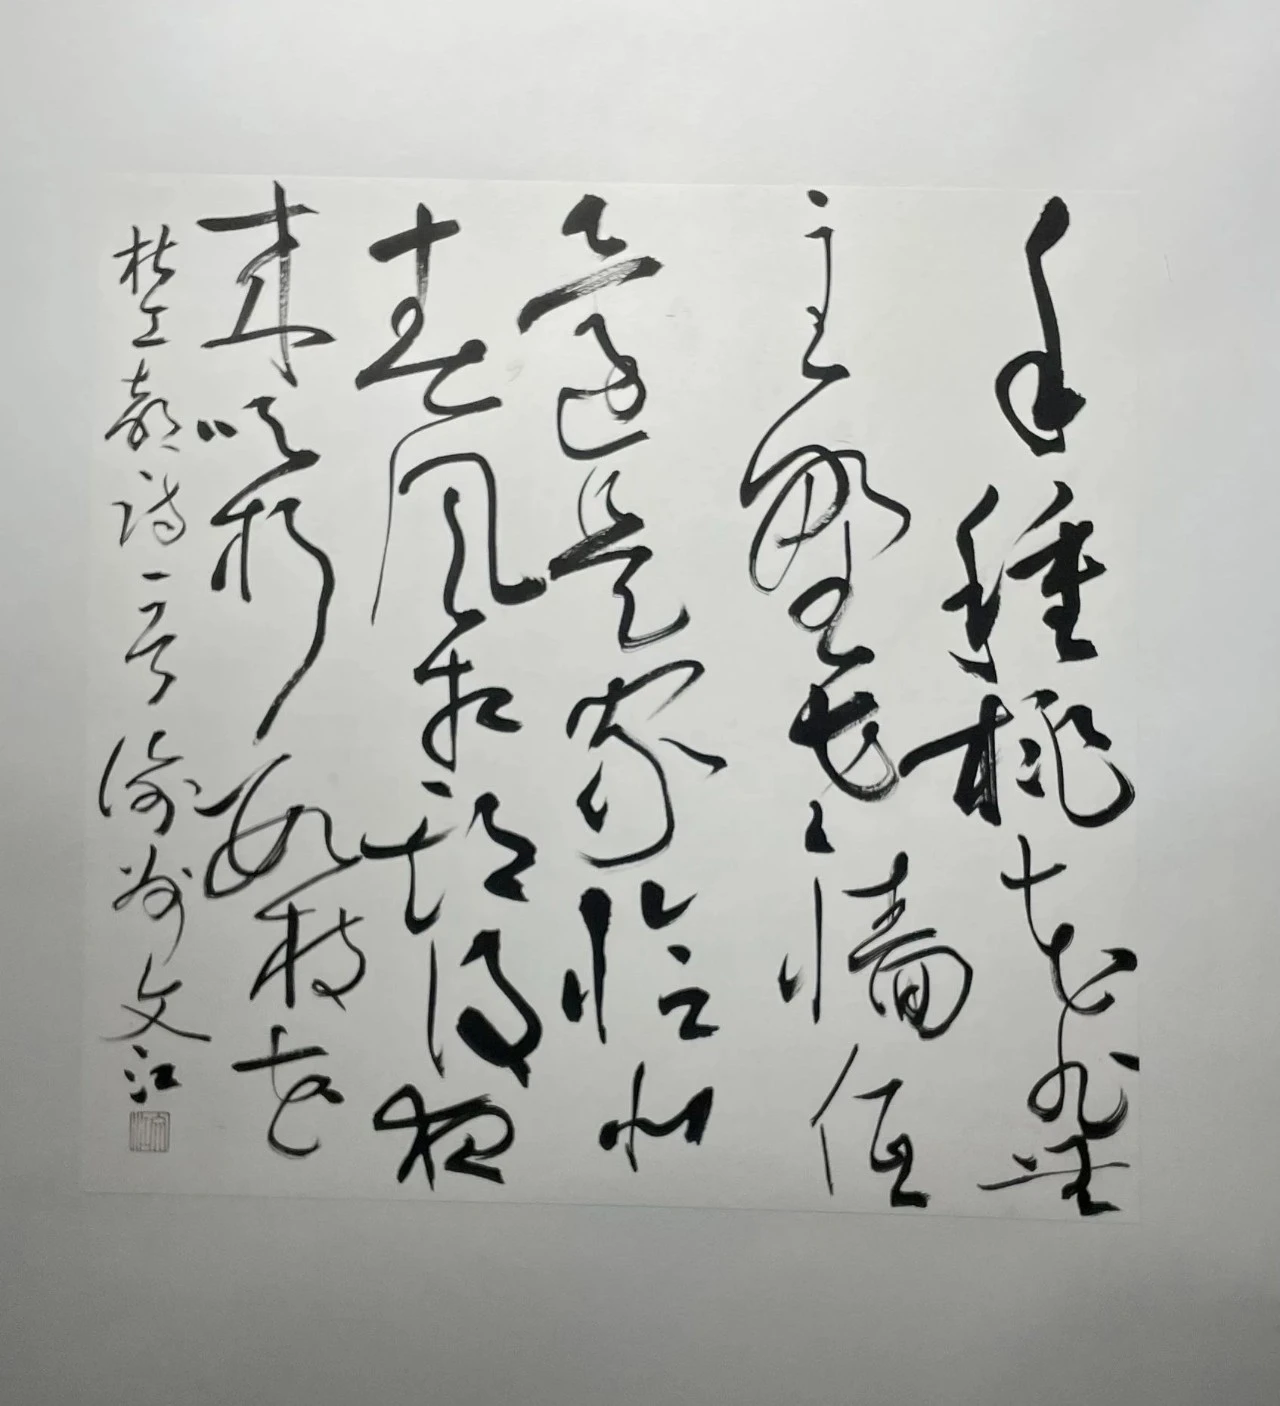 手種桃李非無
主野老墻低
還是家恰似
春風相欺得夜
來吹折數枝花
杜工部詩一首渝州文江